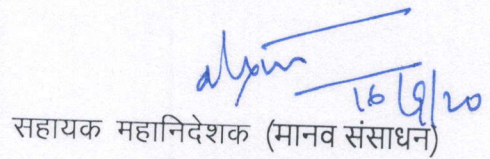 16/9/20
सहायक महानिदेशक (मानव संसाधन)